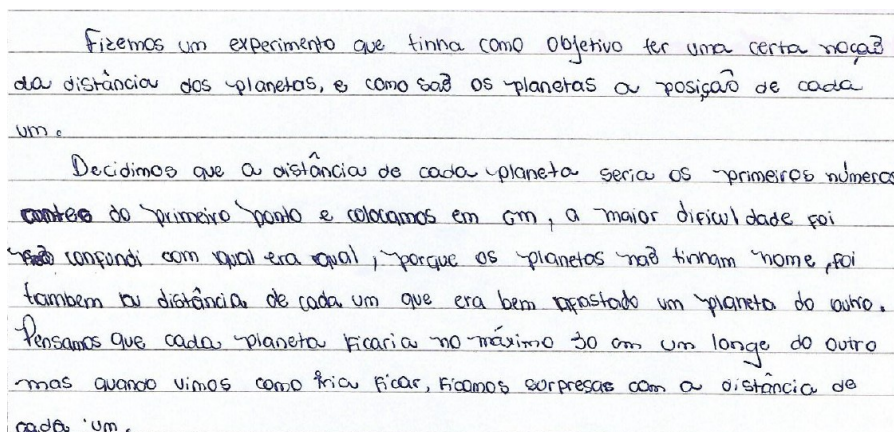 Fizemos um experimento que tinha como objetivo ter uma certa noção
da distância dos planetas, e como são os planetas a posição de cada
um.
Decidimos que a distância de cada planeta seria os primeiros números
antes do primeiro ponto e colocamos em cm, a maior dificuldade foi
não confundi com qual era qual, porque os planetas não tinham nome, foi
tambem a distância de cada um que era bem afastado um planeta do outro.
Pensamos que cada planeta ficaria no máximo 30 cm um longe do outro
mas quando vimos como iria ficar, ficamos surpresas com a distância de
cada um.